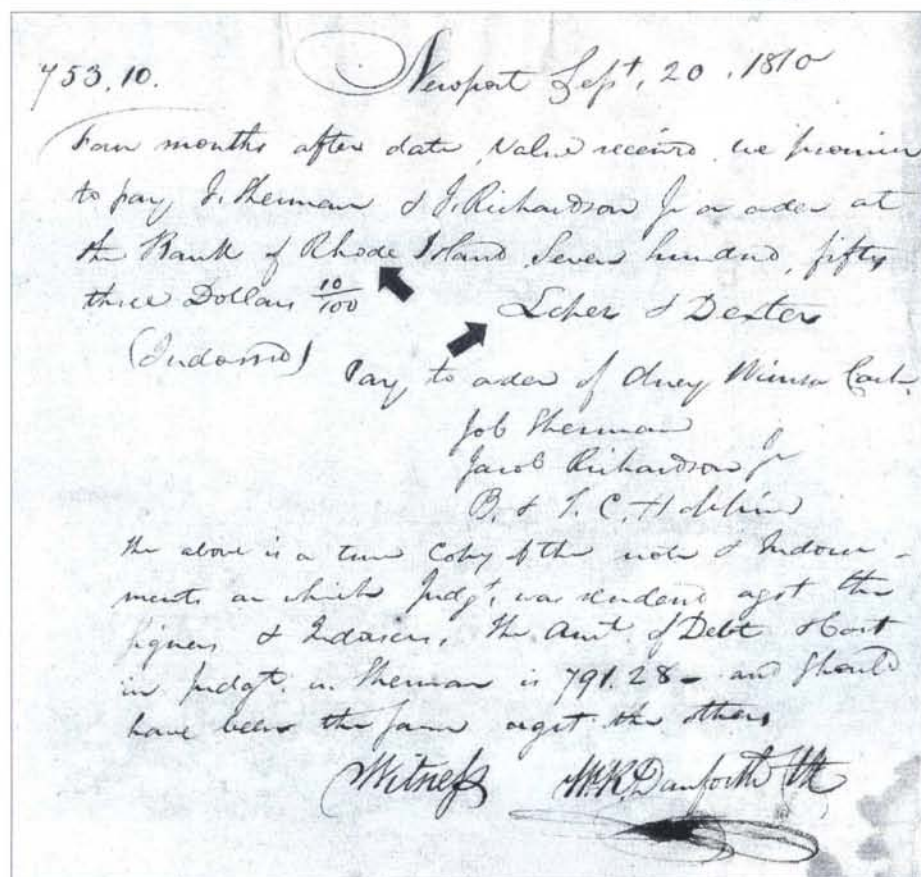 753.10.
Newport Sept. 20. 1810
Four months after date value received we promise
to pay J. Sherman & J. Richardson Jr or order at
the Bank of Rhode Island Seven hundred, fifty
three Dollars 10/100
& Dexter
(Indorsed)
Pay to order of Olney Cash.
Job Sherman
Jacob Richardson Jr
B. & T. C. Hoppin
the above is a true Copy of the note & Indorse-
ments on which Judgt. was rendered agst the
signers & Indorsers, the Amt. of Debt & Cost
in Judgt. vs. Sherman is 791.28 - and Should
have been the same agst the others
Witness W.R. Danforth Clk